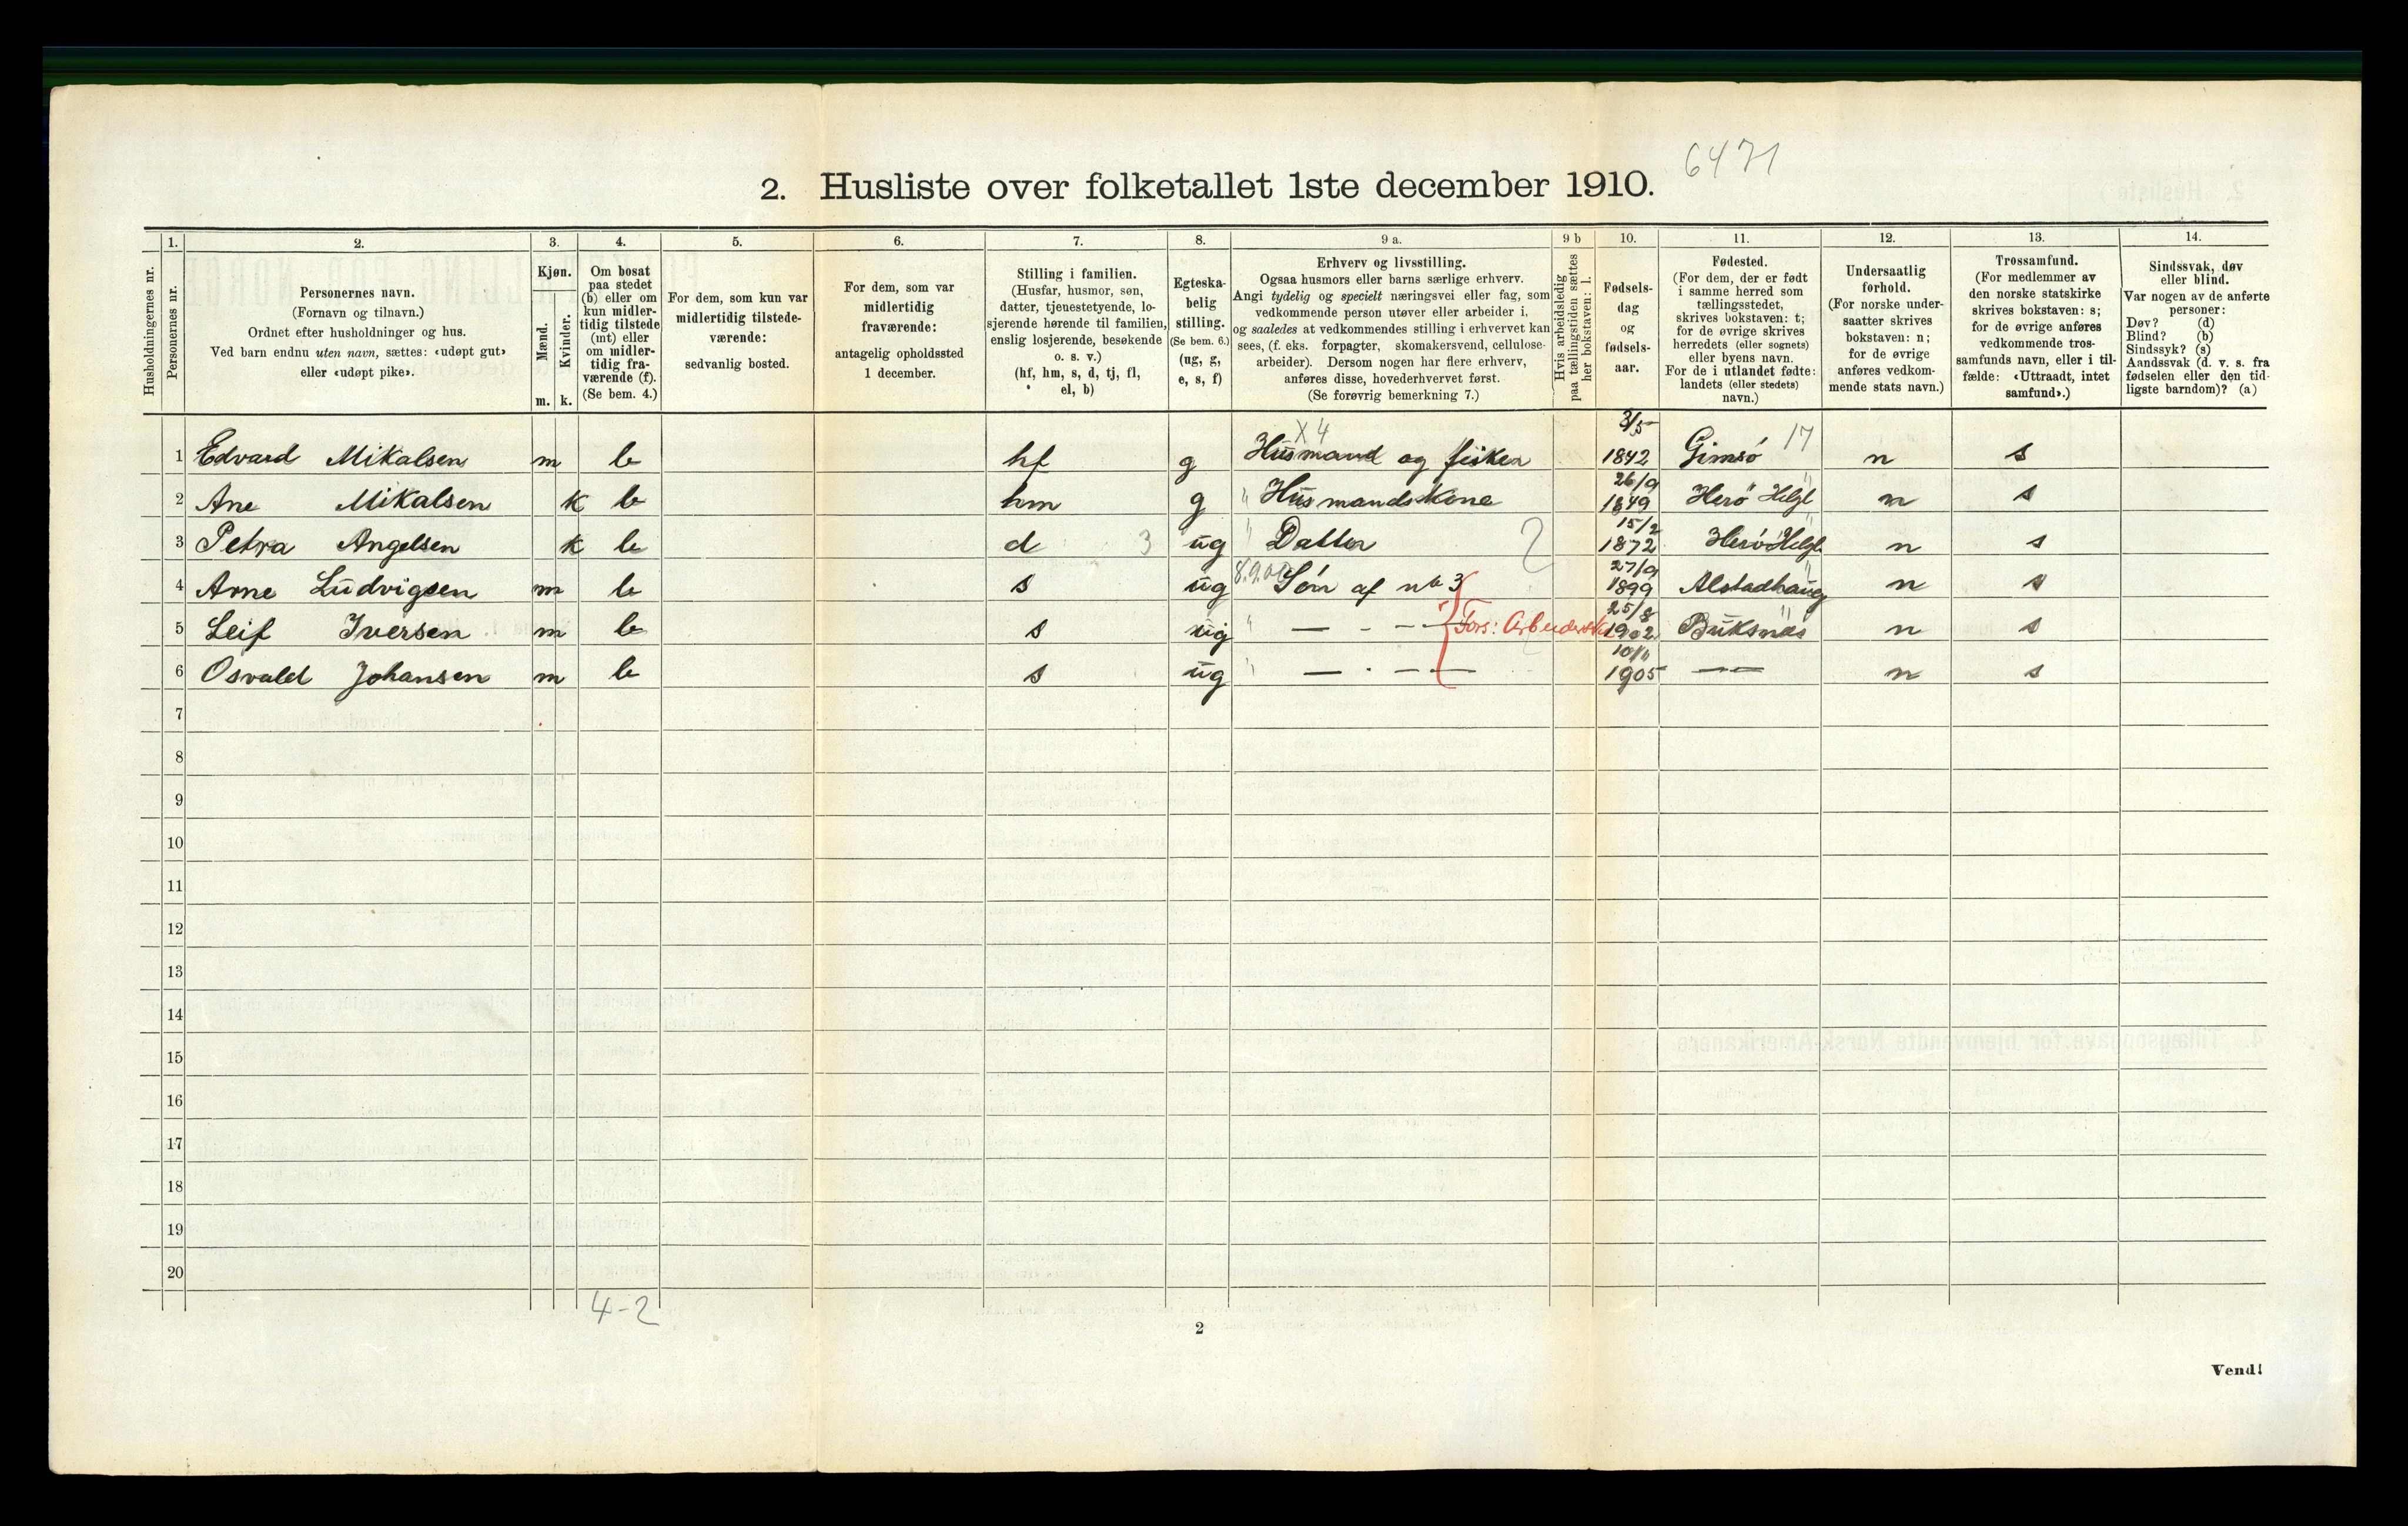 6471
2. Husliste over folketallet 1ste december 1910.
Husholdningernes nr.
1.
Personernes nr.
2.
Personernes navn.
(Fornavn og tilnavn.)
Ordnet efter husholdninger og hus.
Ved barn endnu uten navn, sættes: «udøpt gut»
eller «udøpt pike».
3.
Kjøn.
Mænd.
Kvinder.
m. k.
4.
Om bosat
paa stedet
(b) eller om
kun midler-
tidig tilstede
(mt) eller
om midler-
tidig fra-
værende (f).
(Se bem. 4.)
5.
For dem, som kun var
midlertidig tilstede-
værende:
sedvanlig bosted.
6.
For dem, som var
midlertidig
fraværende:
antagelig opholdssted
1 december.
7.
Stilling i familien.
(Husfar, husmor, søn,
datter, tjenestetyende, lo-
sjerende hørende til familien,
enslig losjerende, besøkende
o. s. v.)
(hf, hm, s, d, tj, fl,
el, b)
8.
Egteska-
belig
stilling.
(Se bem. 6.)
(ug, g,
e, s, f)
9 a.
Erhverv og livsstilling.
Ogsaa husmors eller barns særlige erhverv.
Angi tydelig og specielt næringsvei eller fag, som
vedkommende person utøver eller arbeider i,
og saaledes at vedkommendes stilling i erhvervet kan
sees, (f. eks. forpagter, skomakersvend, cellulose-
arbeider). Dersom nogen har flere erhverv,
anføres disse, hovederhvervet først.
(Se forøvrig bemerkning 7.)
9 b
Hvis arbeidsledig
paa tællingstiden sættes
her bokstaven: l.
10.
Fødsels-
dag
og
fødsels-
aar.
11.
Fødested.
(For dem, der er født
i samme herred som
tællingsstedet,
skrives bokstaven: t;
for de øvrige skrives
herredets (eller sognets)
eller byens navn.
For de i utlandet fødte:
landets (eller stedets)
navn.)
12.
Undersaatlig
forhold.
(For norske under-
saatter skrives
bokstaven: n;
for de øvrige
anføres vedkom-
mende stats navn.)
13.
Trossamfund.
(For medlemmer av
den norske statskirke
skrives bokstaven: s;
for de øvrige anføres
vedkommende tros-
samfunds navn, eller i til-
fælde: «Uttraadt, intet
samfund».)
14.
Sindssvak, døv
eller blind.
Var nogen av de anførte
personer:
Døv? (d)
Blind? (b)
Sindssyk? (s)
Aandssvak (d. v. s. fra
fødselen eller den tid-
ligste barndom)? (a)
X 4 3/5 17
1 Edvard Mikalsen m b hf g Husmand og fisker 1842 Gimsø n s
26/9
2 Ane Mikalsen k b hm g " Husmandskone 1849 Herø Helgl n s
15/2
3 Petra Angelsen k b d 3 ug " Datter 1872 Herø Helgl n s
27/9
4 Arne Ludvigsen m b s ug Søn af no 3 1899 Alstadhaug n s
25/8
5 Leif Iversen m b s ug " — - — 1902 Buksnæs n s
6 Osvald Johansen m b s ug " — - — 1905 — n s
7
8
9
10
11
12
13
14
15
16
17
18
19
20
4-2
2
Vend!